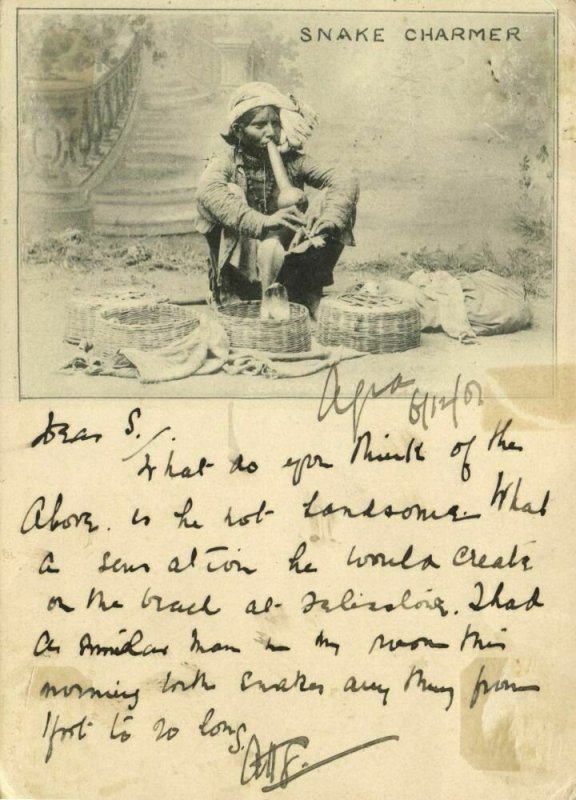 SNAKE CHARMER
Agra 6/12/02
Dear S.
What do you think of the
Above. is he not handsome. What
a sensation he would create
on the beach at
I had
a similar man in my room this
morning with snakes any thing from
1 foot to 20 long.